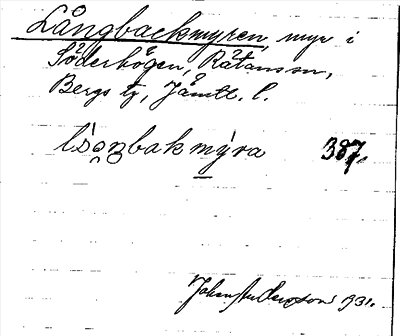 Långbackmyren, myr i
Söderhögen, Rätans sn,
Bergs tg, Jämtl. l.
387.
Johan Anderson 1931.